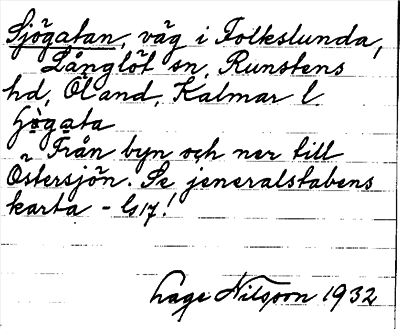 Sjögatan, väg i Folkslunda,
Långlöt sn, Runstens
hd, Öland, Kalmar l.
Från byn och ner till
Östersjön. Se jeneralstabens
karta
Lage Nilsson 1932